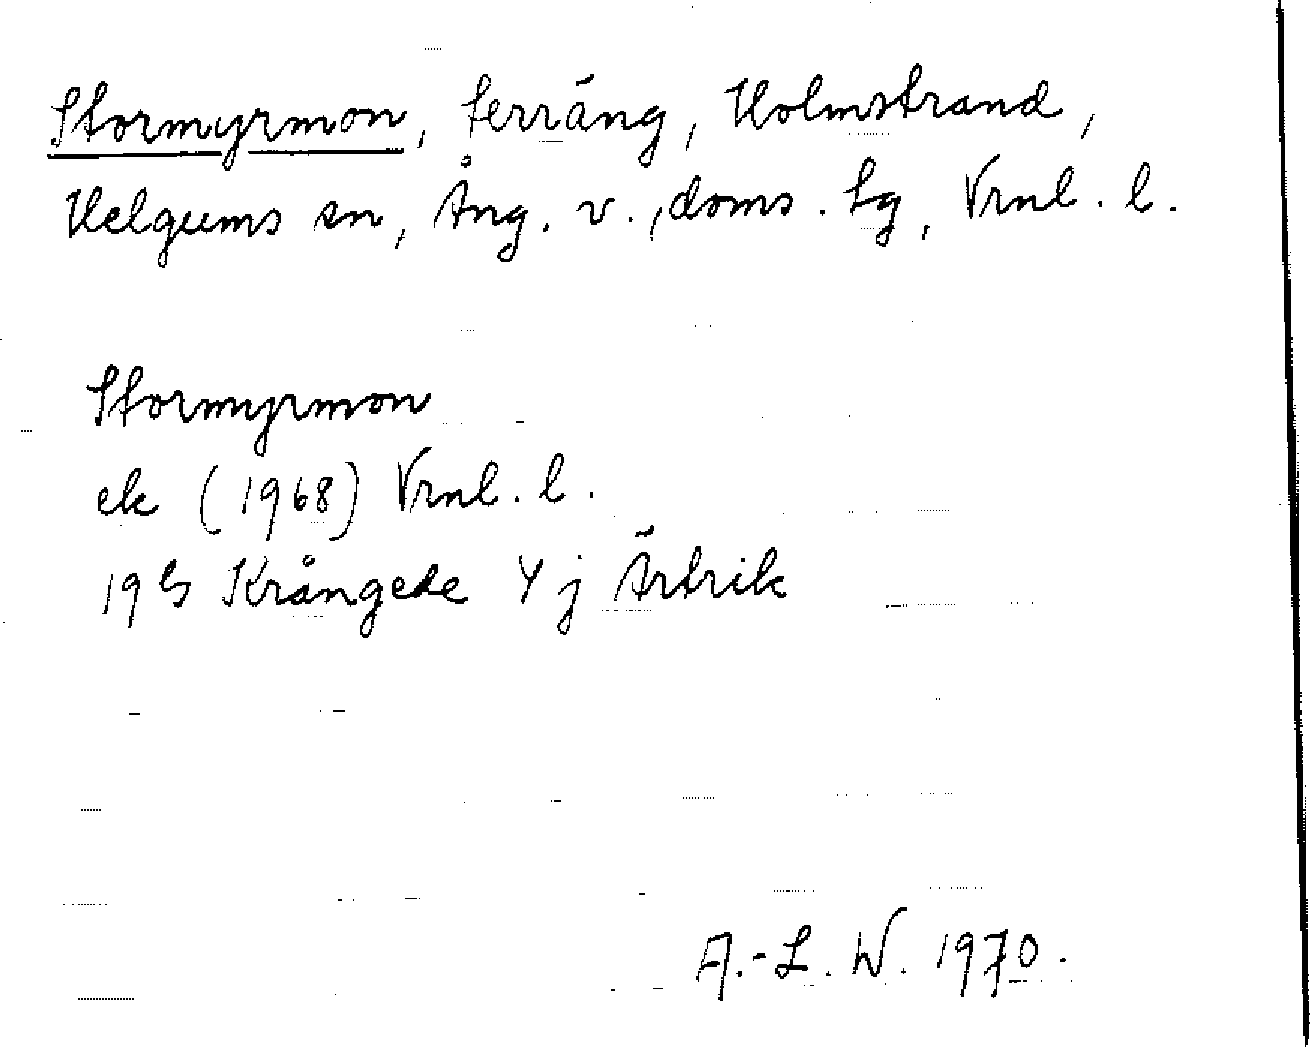 Stormyrmon, terräng, Holmstrand,
Helgums sn, Ång. v. doms. tg, Vrnl. l.
Stormyrmon
ek (1968) Vrnl. l.
19 Krångede Y j Ärtrik
A.-L. W. 1970.